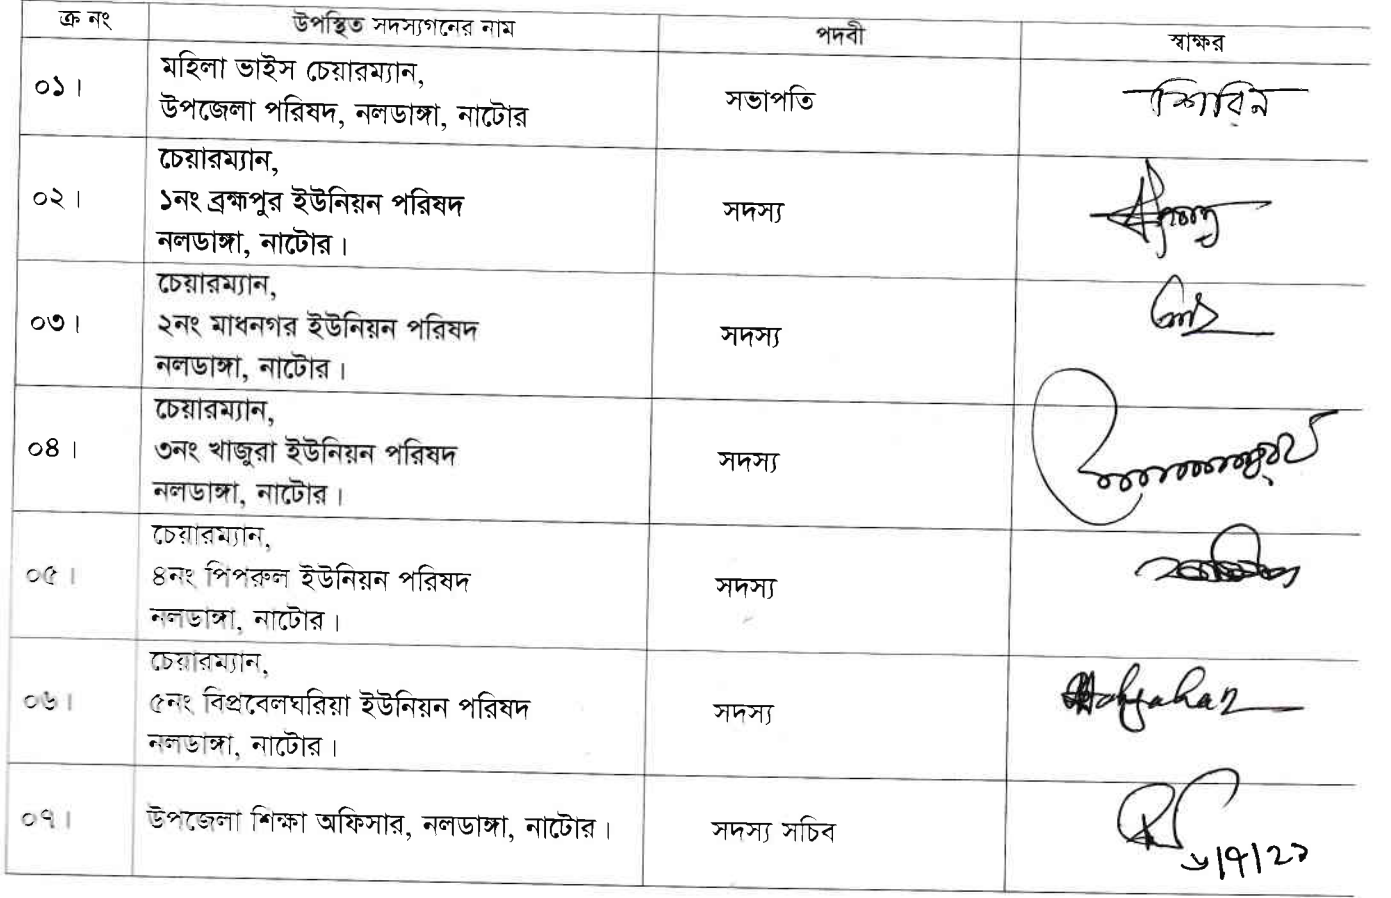 ক্র নং উপস্থিত সদস্যগনের নাম পদবী স্বাক্ষর
০১। মহিলা ভাইস চেয়ারম্যান,
উপজেলা পরিষদ, নলডাঙ্গা, নাটোর সভাপতি শিরিন
০২। চেয়ারম্যান,
১নং ব্রহ্মপুর ইউনিয়ন পরিষদ সদস্য
নলডাঙ্গা, নাটোর।
০৩। চেয়ারম্যান,
২নং মাধনগর ইউনিয়ন পরিষদ সদস্য
নলডাঙ্গা, নাটোর।
০৪। চেয়ারম্যান,
৩নং খাজুরা ইউনিয়ন পরিষদ সদস্য
নলডাঙ্গা, নাটোর।
০৫। চেয়ারম্যান,
৪নং পিপরুল ইউনিয়ন পরিষদ সদস্য
নলডাঙ্গা, নাটোর।
০৬। চেয়ারম্যান,
৫নং বিপ্রবেলঘরিয়া ইউনিয়ন পরিষদ সদস্য
নলডাঙ্গা, নাটোর।
০৭। উপজেলা শিক্ষা অফিসার, নলডাঙ্গা, নাটোর। সদস্য সচিব